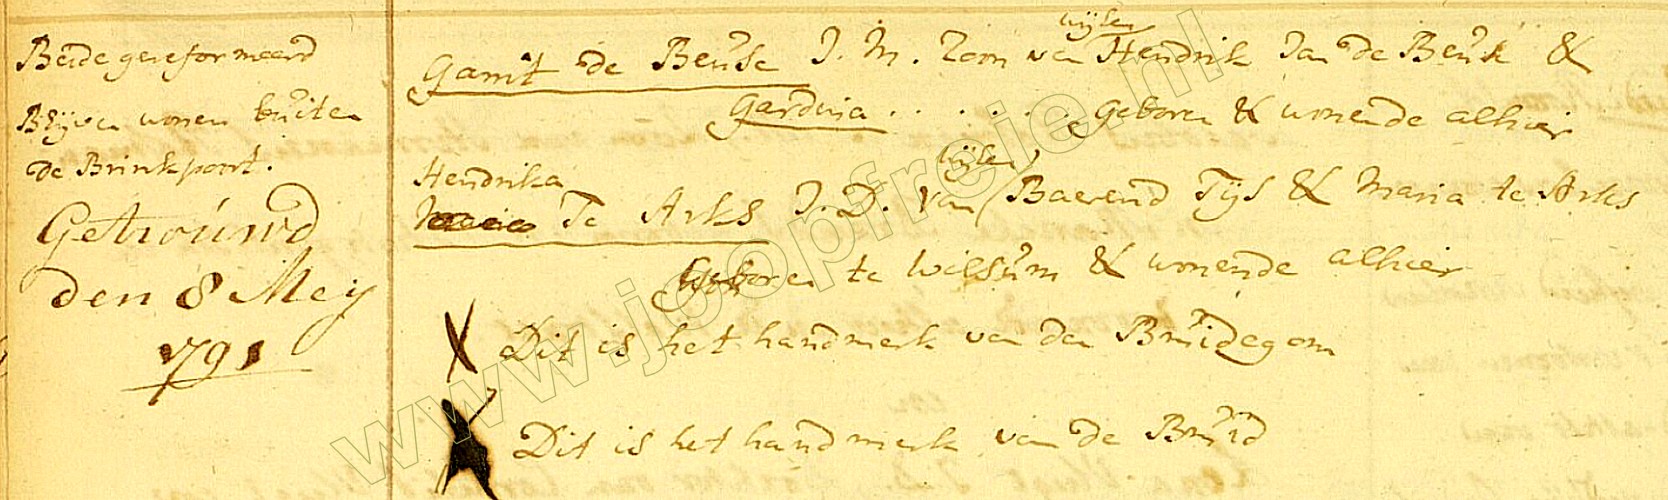 Beide gereformeerd
Blijven wonen buiten
de Brinkpoort.
Getrouwd
den 8 Mey
1791
wijlen
Garrit de Beuse J. M. Zoon van Hendrik Jan de Beuk &
Gardina . . . . . . geboren & wonende alhier
Hendrika
wijlen
Te Arks J. D. van Barend Tijs & Maria te Arks
Geboren te Wilsum & wonende alhier
X Dit is het handmerk van den Bruidegom
X Dit is het handmerk van de Bruid
www.joopfreie.nl